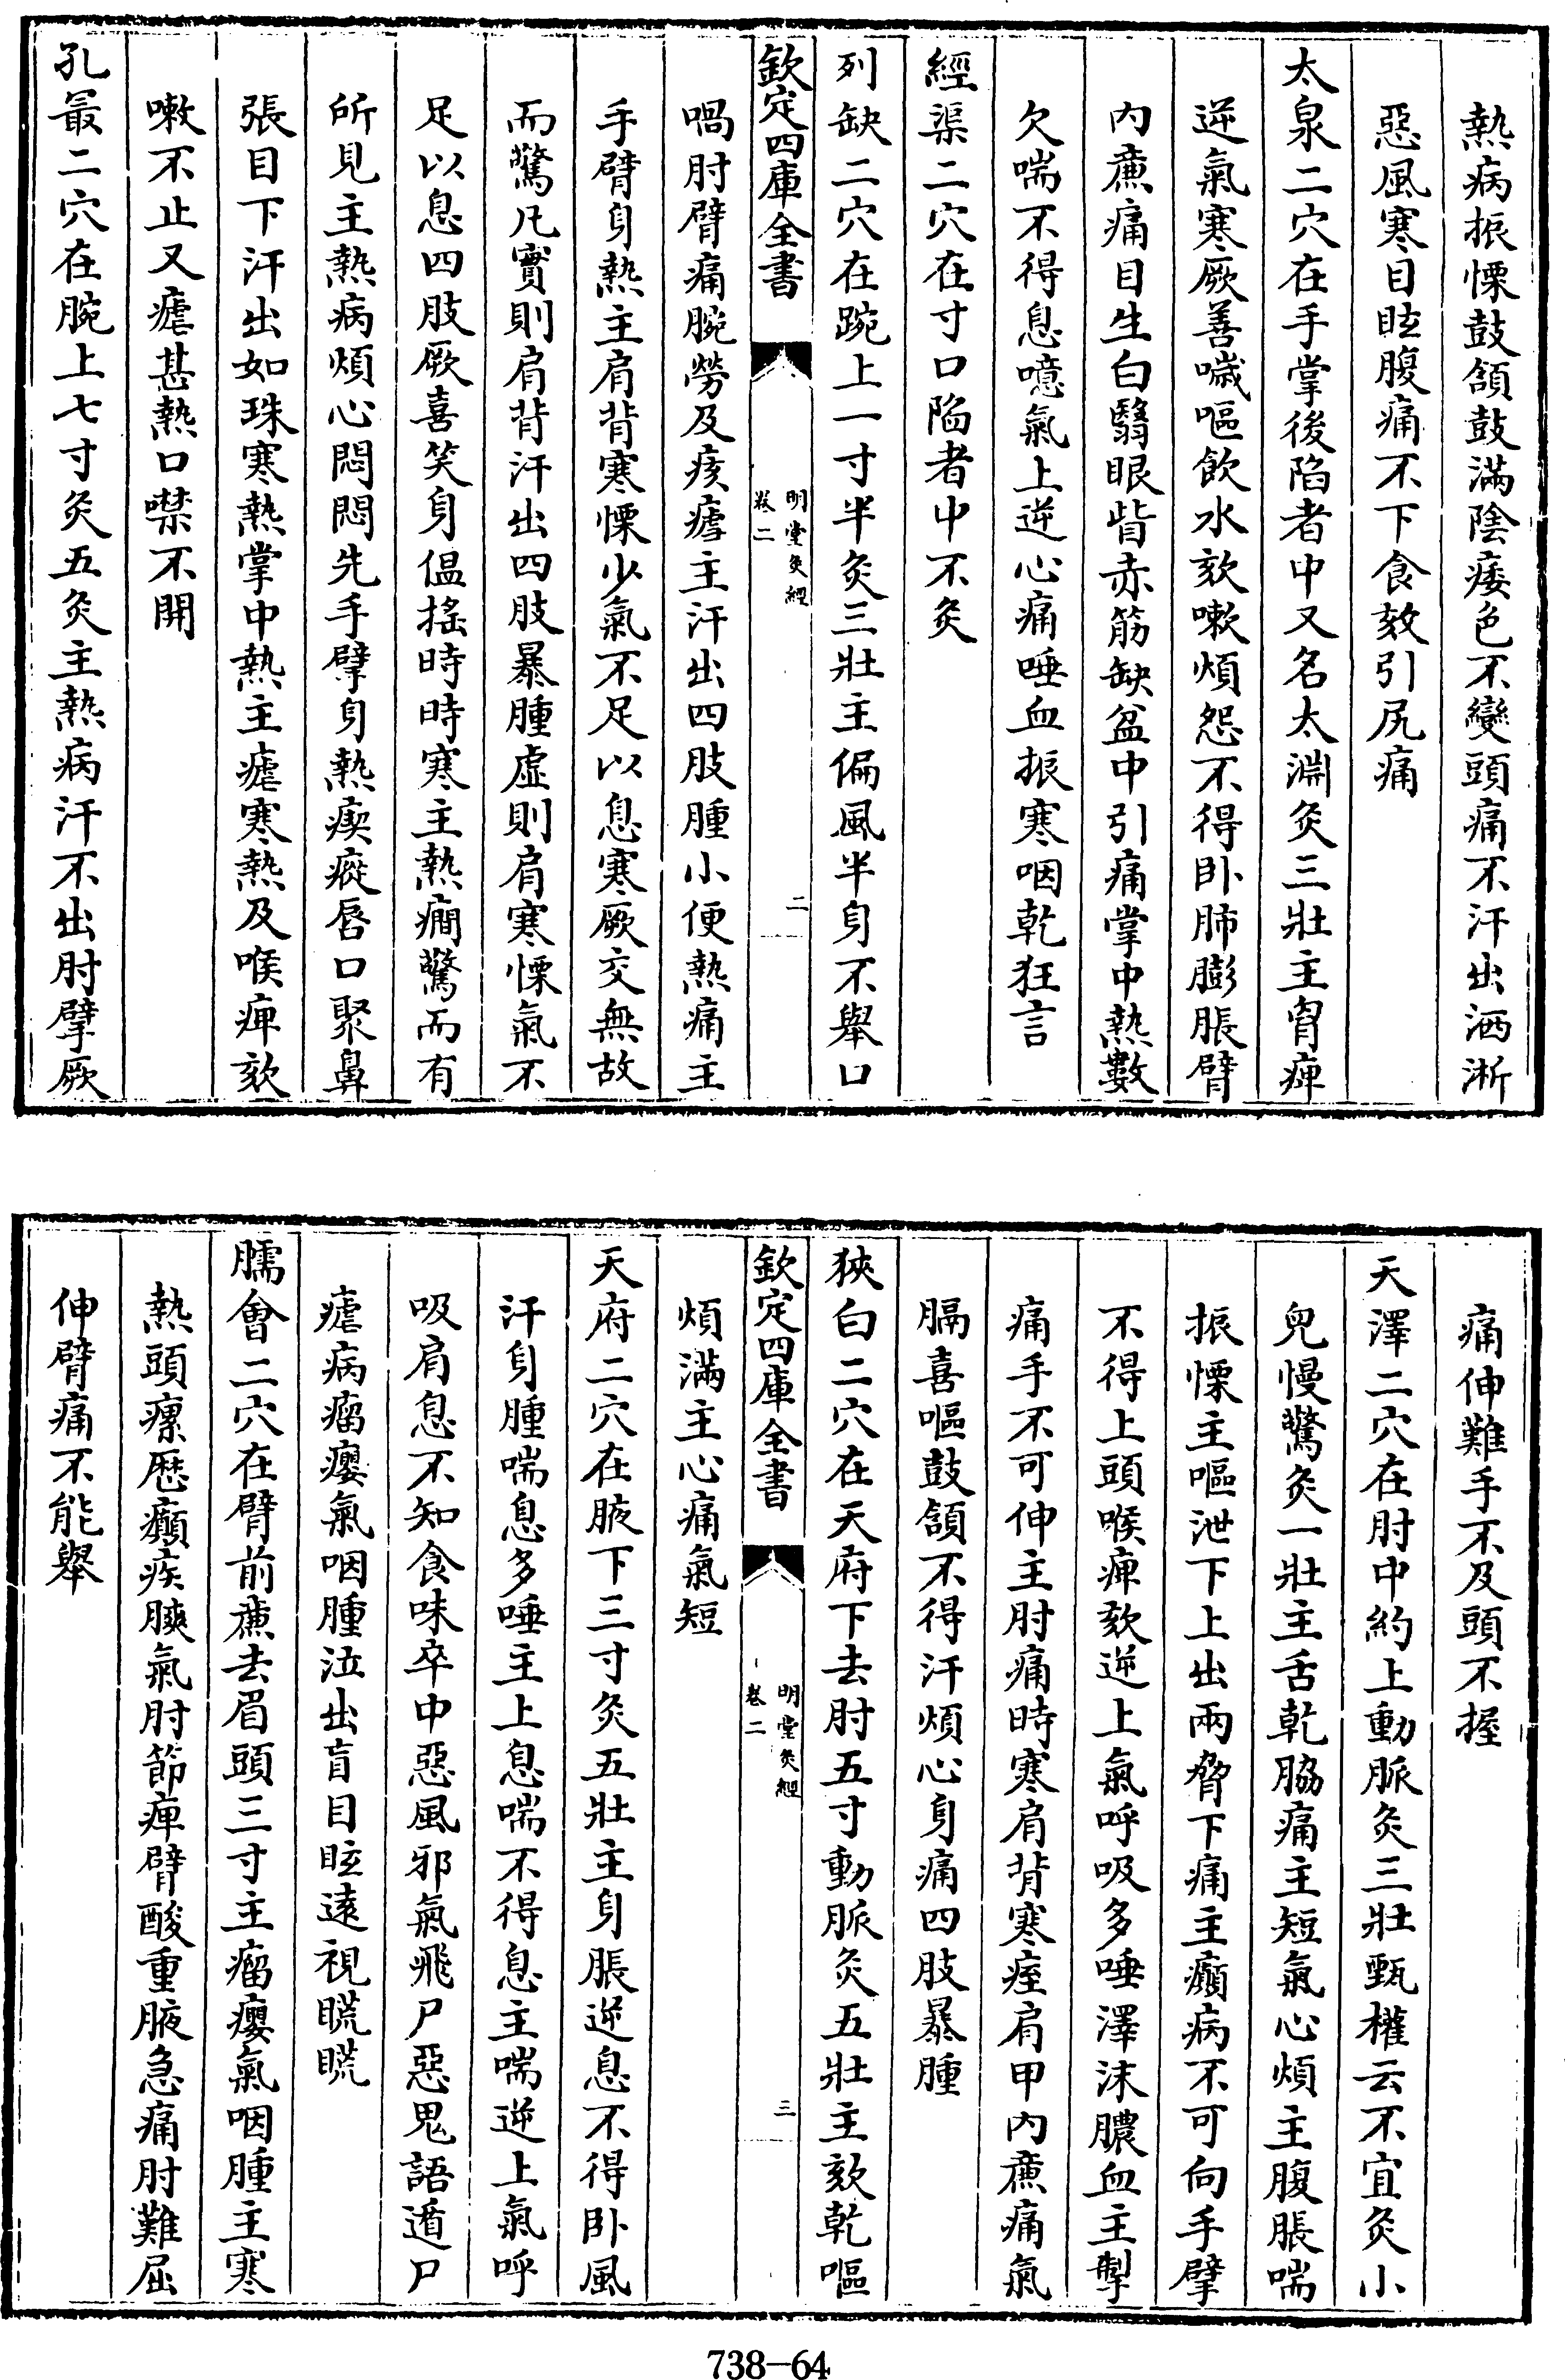 熱病振慄鼓頷鼓滿陰痿色不變頭痛不汗出洒淅
惡風寒目眩腹痛不下食欬引尻痛
太泉二穴在手掌後陷者中又名太淵灸三壯主胷痺
逆氣寒厥善噦嘔飲水欬嗽煩怨不得卧肺膨脹臂
内㢗痛目生白翳眼眥赤筋缺盆中引痛掌中熱數
欠喘不得息噫氣上逆心痛唾血振寒咽乾狂言
經渠二穴在寸口陷者中不灸
列缺二穴在踠上一寸半灸三壯主偏風半身不舉口
欽定四庫全書
明堂灸經
卷二
二
喎肘臂痛腕勞及痎瘧主汗出四肢腫小便熱痛主
手臂身熱主肩背寒慄少氣不足以息寒厥交無故
而驚凡實則肩背汗出四肢暴腫虛則肩寒慄氣不
足以息四肢厥喜笑身傴搖時時寒主熱癇驚而有
所見主熱病煩心悶悶先手臂身熱瘈瘲唇口聚鼻
張目下汗出如珠寒熱掌中熱主瘧寒熱及喉痺欬
嗽不止又瘧甚熱口噤不開
孔最二穴在腕上七寸灸五灸主熱病汗不出肘臂厥
痛伸難手不及頭不握
天澤二穴在肘中約上動脈灸三壯甄權云不宜灸小
兒慢驚灸一壯主舌乾脇痛主短氣心煩主腹脹喘
振慄主嘔泄下上出兩脅下痛主癲病不可向手臂
不得上頭喉痺欬逆上氣呼吸多唾澤沫膿血主掣
痛手不可伸主肘痛時寒肩背寒痓肩甲内㢗痛氣
膈喜嘔鼓頷不得汗煩心身痛四肢暴腫
狹白二穴在天府下去肘五寸動脈灸五壯主欬乾嘔
欽定四庫全書
明堂灸經
卷二
三
煩滿主心痛氣短
天府二穴在腋下三寸灸五壯主身脹逆息不得卧風
汗身腫喘息多唾主上息喘不得息主喘逆上氣呼
吸肩息不知食味卒中惡風邪氣飛尸惡鬼語遁尸
瘧病瘤癭氣咽腫泣出盲目眩遠視䀮䀮
臑會二穴在臂前㢗去眉頭三寸主瘤癭氣咽腫主寒
熱頭瘰厯癲疾腠氣肘節痺臂酸重腋急痛肘難屈
伸臂痛不能舉
738-64